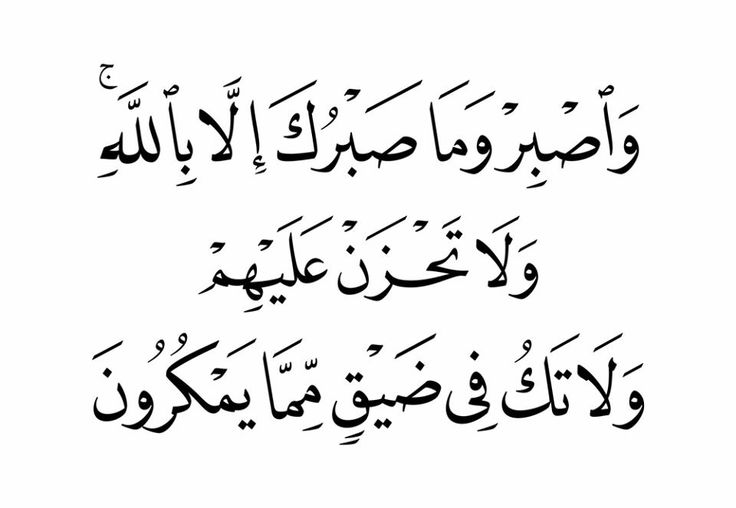 وَٱصْبِرْ وَمَا صَبْرُكَ إِلَّا بِٱللَّهِۚ
وَلَا تَحْزَنْ عَلَيْهِمْ
وَلَا تَكُ فِى ضَيْقٍ مِّمَّا يَمْكُرُونَ